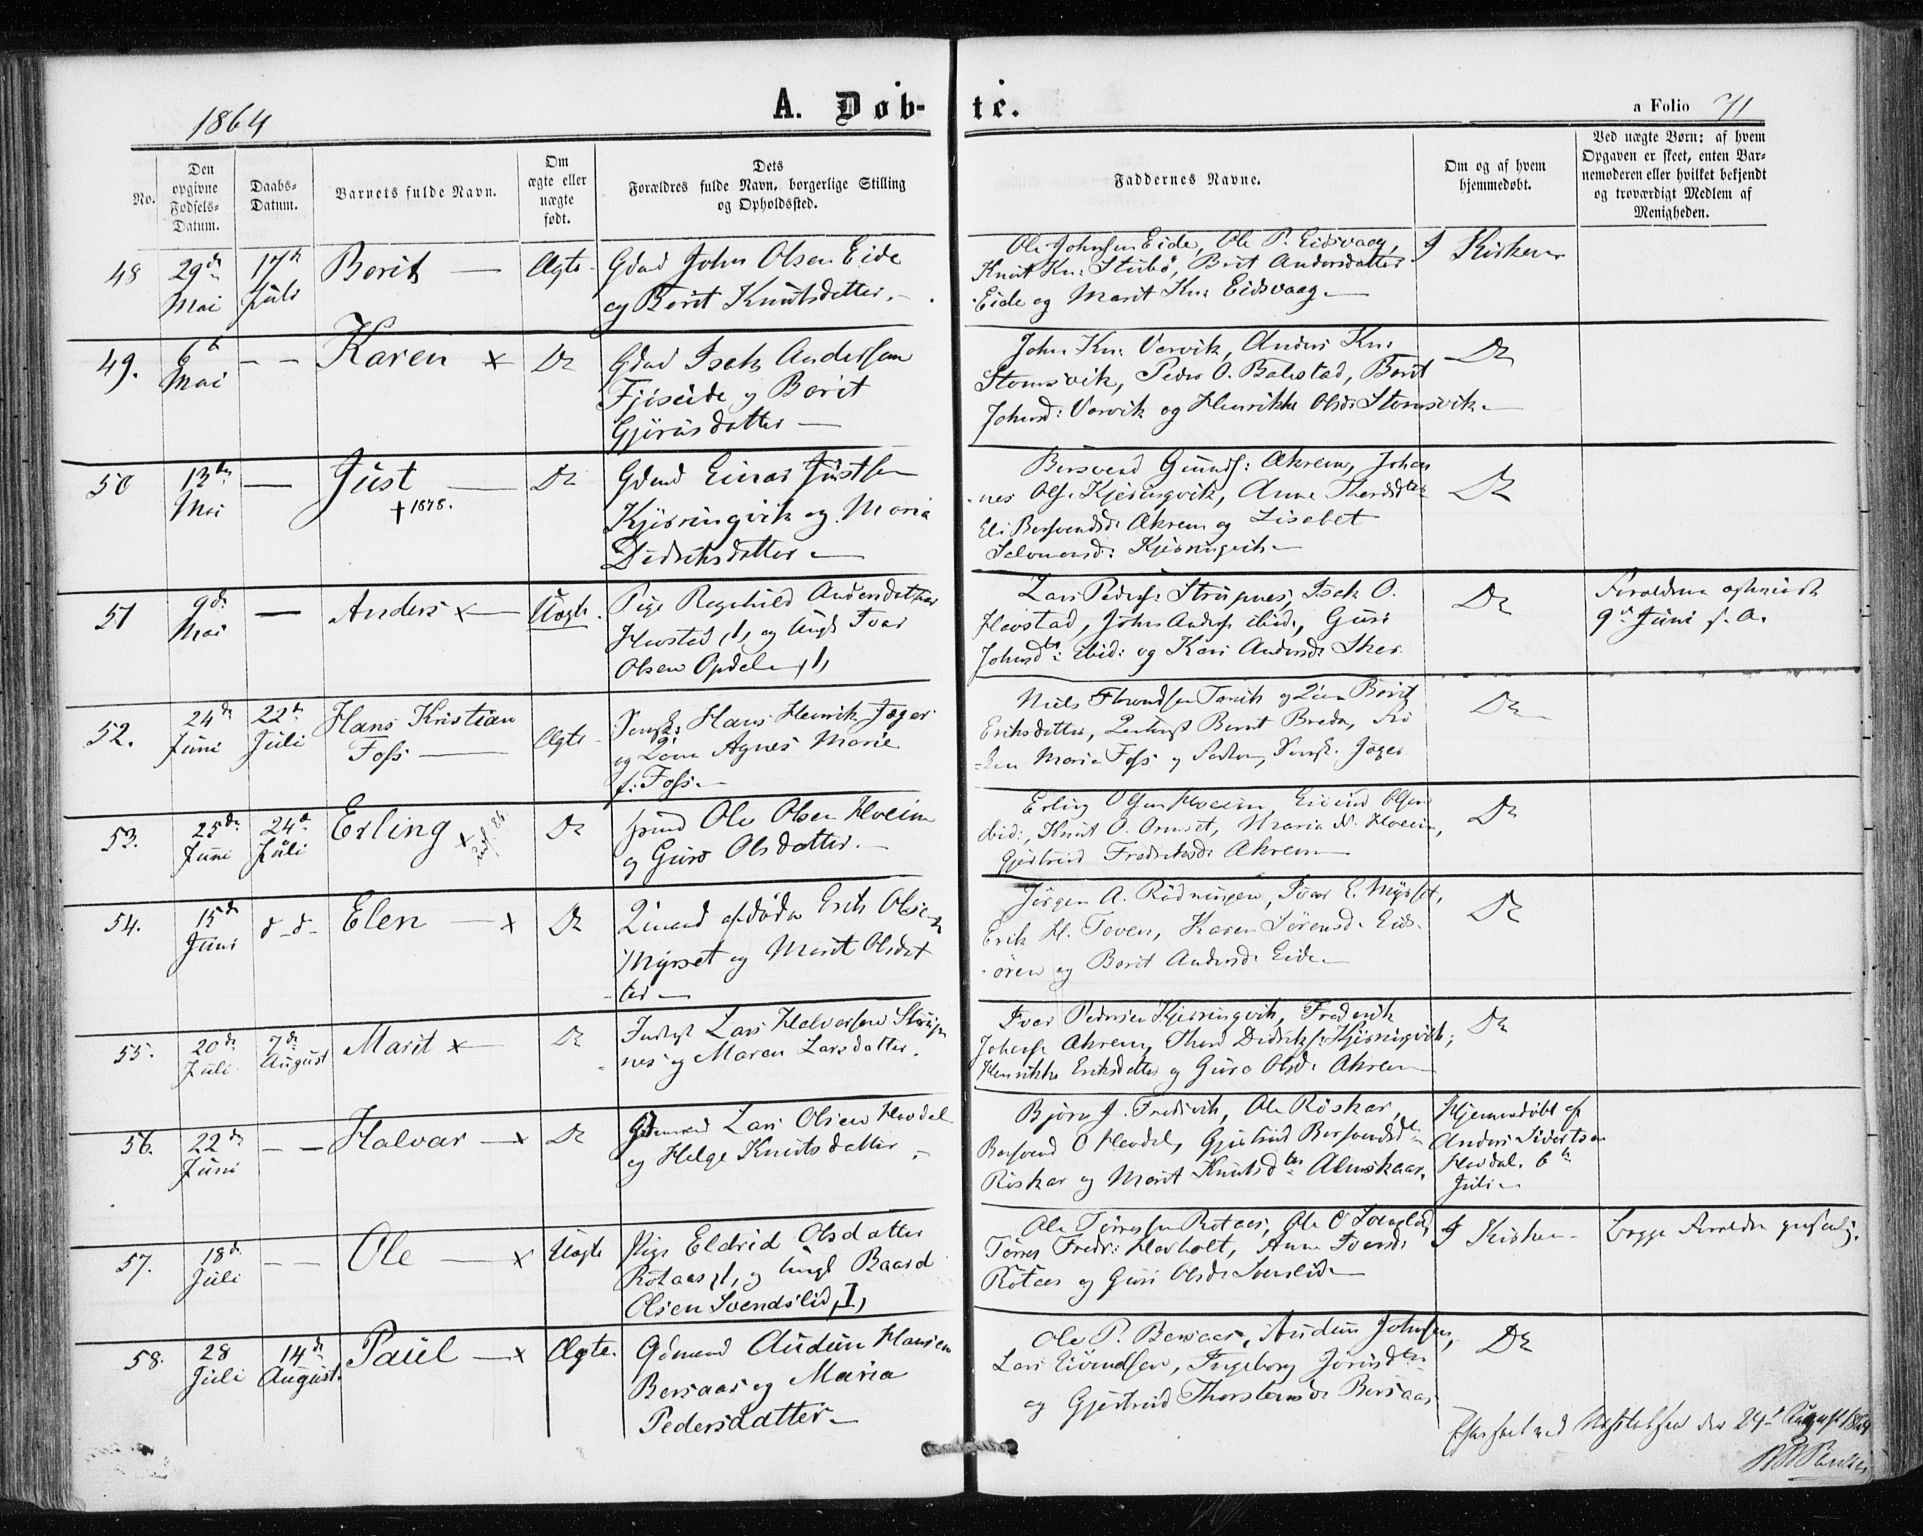 1864
A. Døb-te.
a Folio 71
No.
Den opgivne Fødsels-Datum.
Daabs-Datum.
Barnets fulde Navn.
Om ægte eller uægte født.
Dets Forældres fulde Navn, borgerlige Stilling og Opholdssted.
Faddernes Navne.
Om og af hvem hjemmedøbt.
Ved uægte Børn; af hvem Opgaven er skeet, enten Barnemoderen eller hvilket bekjendt og troværdigt Medlem af Menigheden.
48 29de Mai 17de Juli Borit Ægte
Gdmd John Olsen Eide
og Borit Knutsdatter
Ole Johnsen Eide, Ole P. Eidsvaag,
Knut Kn: Stubø, Brit Andersdatter
Eide og Marit Kn: Eidsvaag
I Kirken
49. 6te Mai - - Karen x Do
Gdmd Isak Andersen
Fjøseide og Borit
Gjørisdatter
John Kn: Varvik, Anders Kn:
Stomsvik, Peder O. Bolestad, Borit
Johnsd: Varvik og Henrikke Olsd: Stomsvik
Do
50 13de Mai — Just † 1878. Do
Gdmd Einar Justsen
Kjøringvik og Maria
Didriksdatter
Bersvend Gunnds: Akrem, Johan
nes Ols: Kjøringvik, Anne
Eli Bersvendsd: Akrem og Lisabet
Salomonsd: Kjøringvik
Do
51 9de Mai — Anders x Uægte.
Pige Ragnhild Audensdatter
Havstad /1/ og Ungk Ivar
Olsen Opdal /1/
Lars Peders: Strupnes, Isak O.
Havstad, John Anders: ibid:, Guri
Johnsdtr: ibid: og Kari Andersd:
Do
9de Juni s. A.
52. 24de Juni 22de Juli Hans Kristian Foss Ægte
Hans Henrik Jæger
og Agnes Marie
f: Foss
Borit
Eriksdatter, Bernt Breda,
Maria Foss og Jæger
Do
53. 25de Juni 24de Juli Erling x Do
Ole Olsen Hoeim
og Guro Olsdatter
Erling Olsen Hoeim, Eivind Olsen
ibid:, Knut O. Ormset, Maria N. Hoeim,
Gjertrud Fredriksd: Akrem
Do
54. 15de Juni d - d - Elen x Do
afdøde Erik Olsen
Myrset og Marit Olsdat
ter
Jørgen A. Rødningen, Ivar E. Myrset,
Erik H. Toven, Karen Sørensd: Eids-
øren og Borit Andersd: Eide
Do
55. 20de Juli 7de August Marit x Do
Inderst Lars Halvorsen Strup
nes og Maren Larsdatter
Ivar Pedersen Kjøringvik, Frederik
Johnsen Akrem, Thore Didriks: Kjøringvik;
Henrikke Eriksdatter og Guro Olsd: Akrem
Do
56. 22de Juni - - Halvar x Do
Gdmd Lars Olsen Hovdal
og Helge Knutsdatter
Bjørn J. Fredsvik, Ole Røskar,
Bersvend O Hovdal, Gjertrud Bersvendsdtr
Røskar og Marit Knutsdtr Almskaar.
Hjemmedøbt af
Anders Sivertsen
Hovdal. 6te
Juli
57. 18de Juli - - Ole x Uægte
Pige Eldrid Olsdatter
Rotaas /1/ og Ungk Baard
Olsen Svendslid /1/
Ole Tørresen Rotaas, Ole O Svenslid,
Tørres Fredr: Havholt, Anne Iversd:
Rotaas og Guri Olsd: Svenslid
I Kirken
58. 28 Juli 14de August Paul x Ægte.
Gdmand Audun Hansen
Bersaas og Maria
Pedersdatter
Ole P. Bersaas, Audun Johnsen,
Lars Eivindsen, Ingeborg Jørisdtr
og Gjertrud Thorstensd: Bersaas
Do
Efterseet ved Visitatsen den 24de August 1864